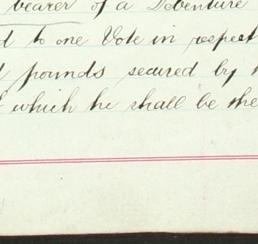 bearer of a Debenture
d to one Vote in respect
pounds secured by
which he shall be the